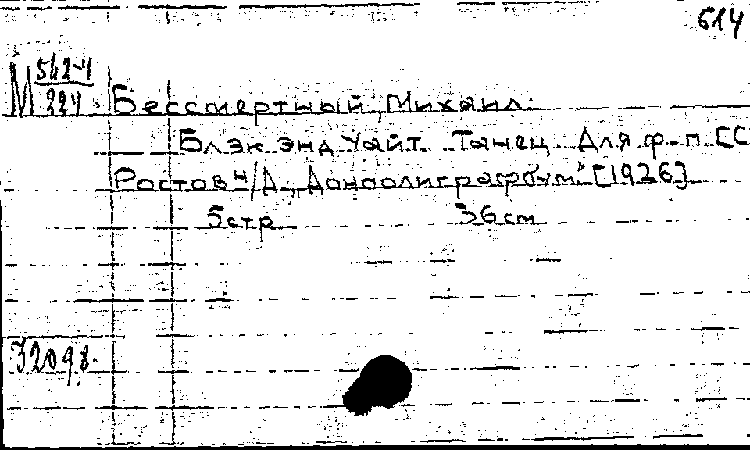 614
М 562-4
224
Бессмертный, Михаил.
Блэк энд Уайт. Танец. Для ф-п [СС
Ростов н/Д., Донполиграфбум" [1926]
5 стр 36 cm
32098.